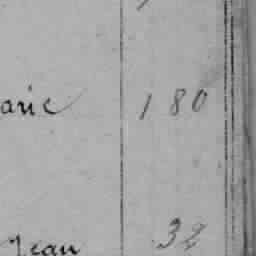 arie 180
Jean 32